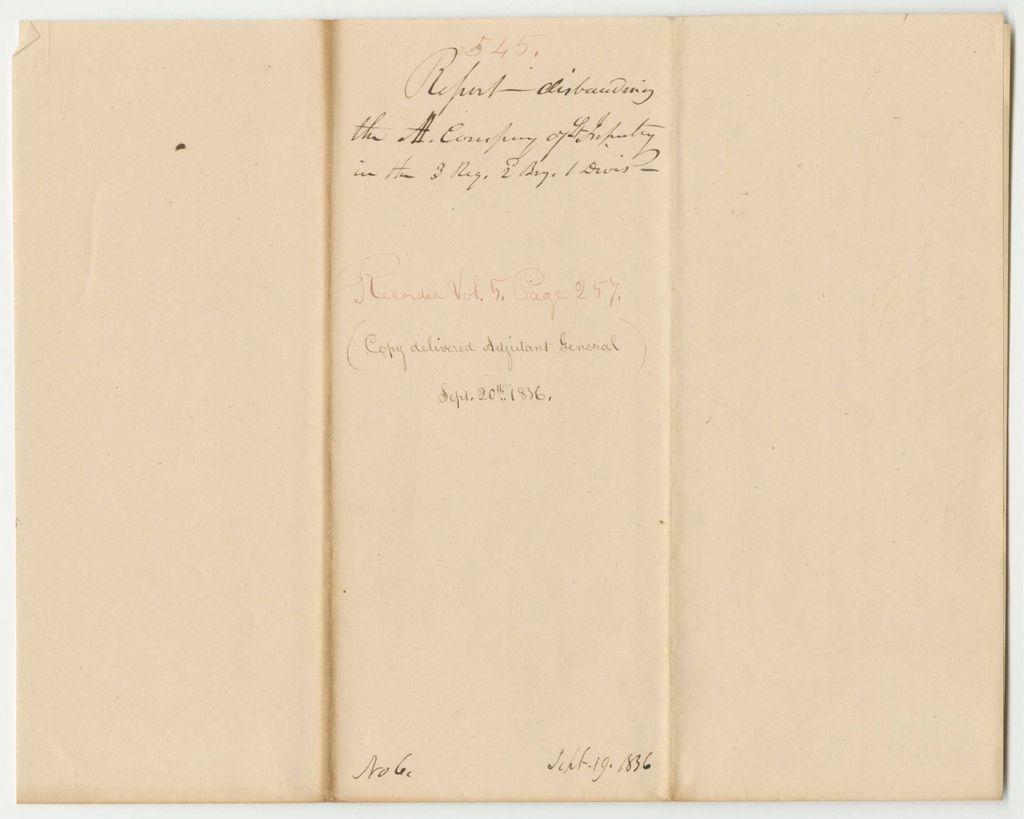 545.
Report – disbanding
the A. Company of Lt. Infantry
in the 3 Reg. 2 Brig. 1 Divis–
Recorded Vol. 5. Page 257.
(Copy delivered Adjutant General)
Sept. 20th. 1836.
No 6.
Sept. 19. 1836